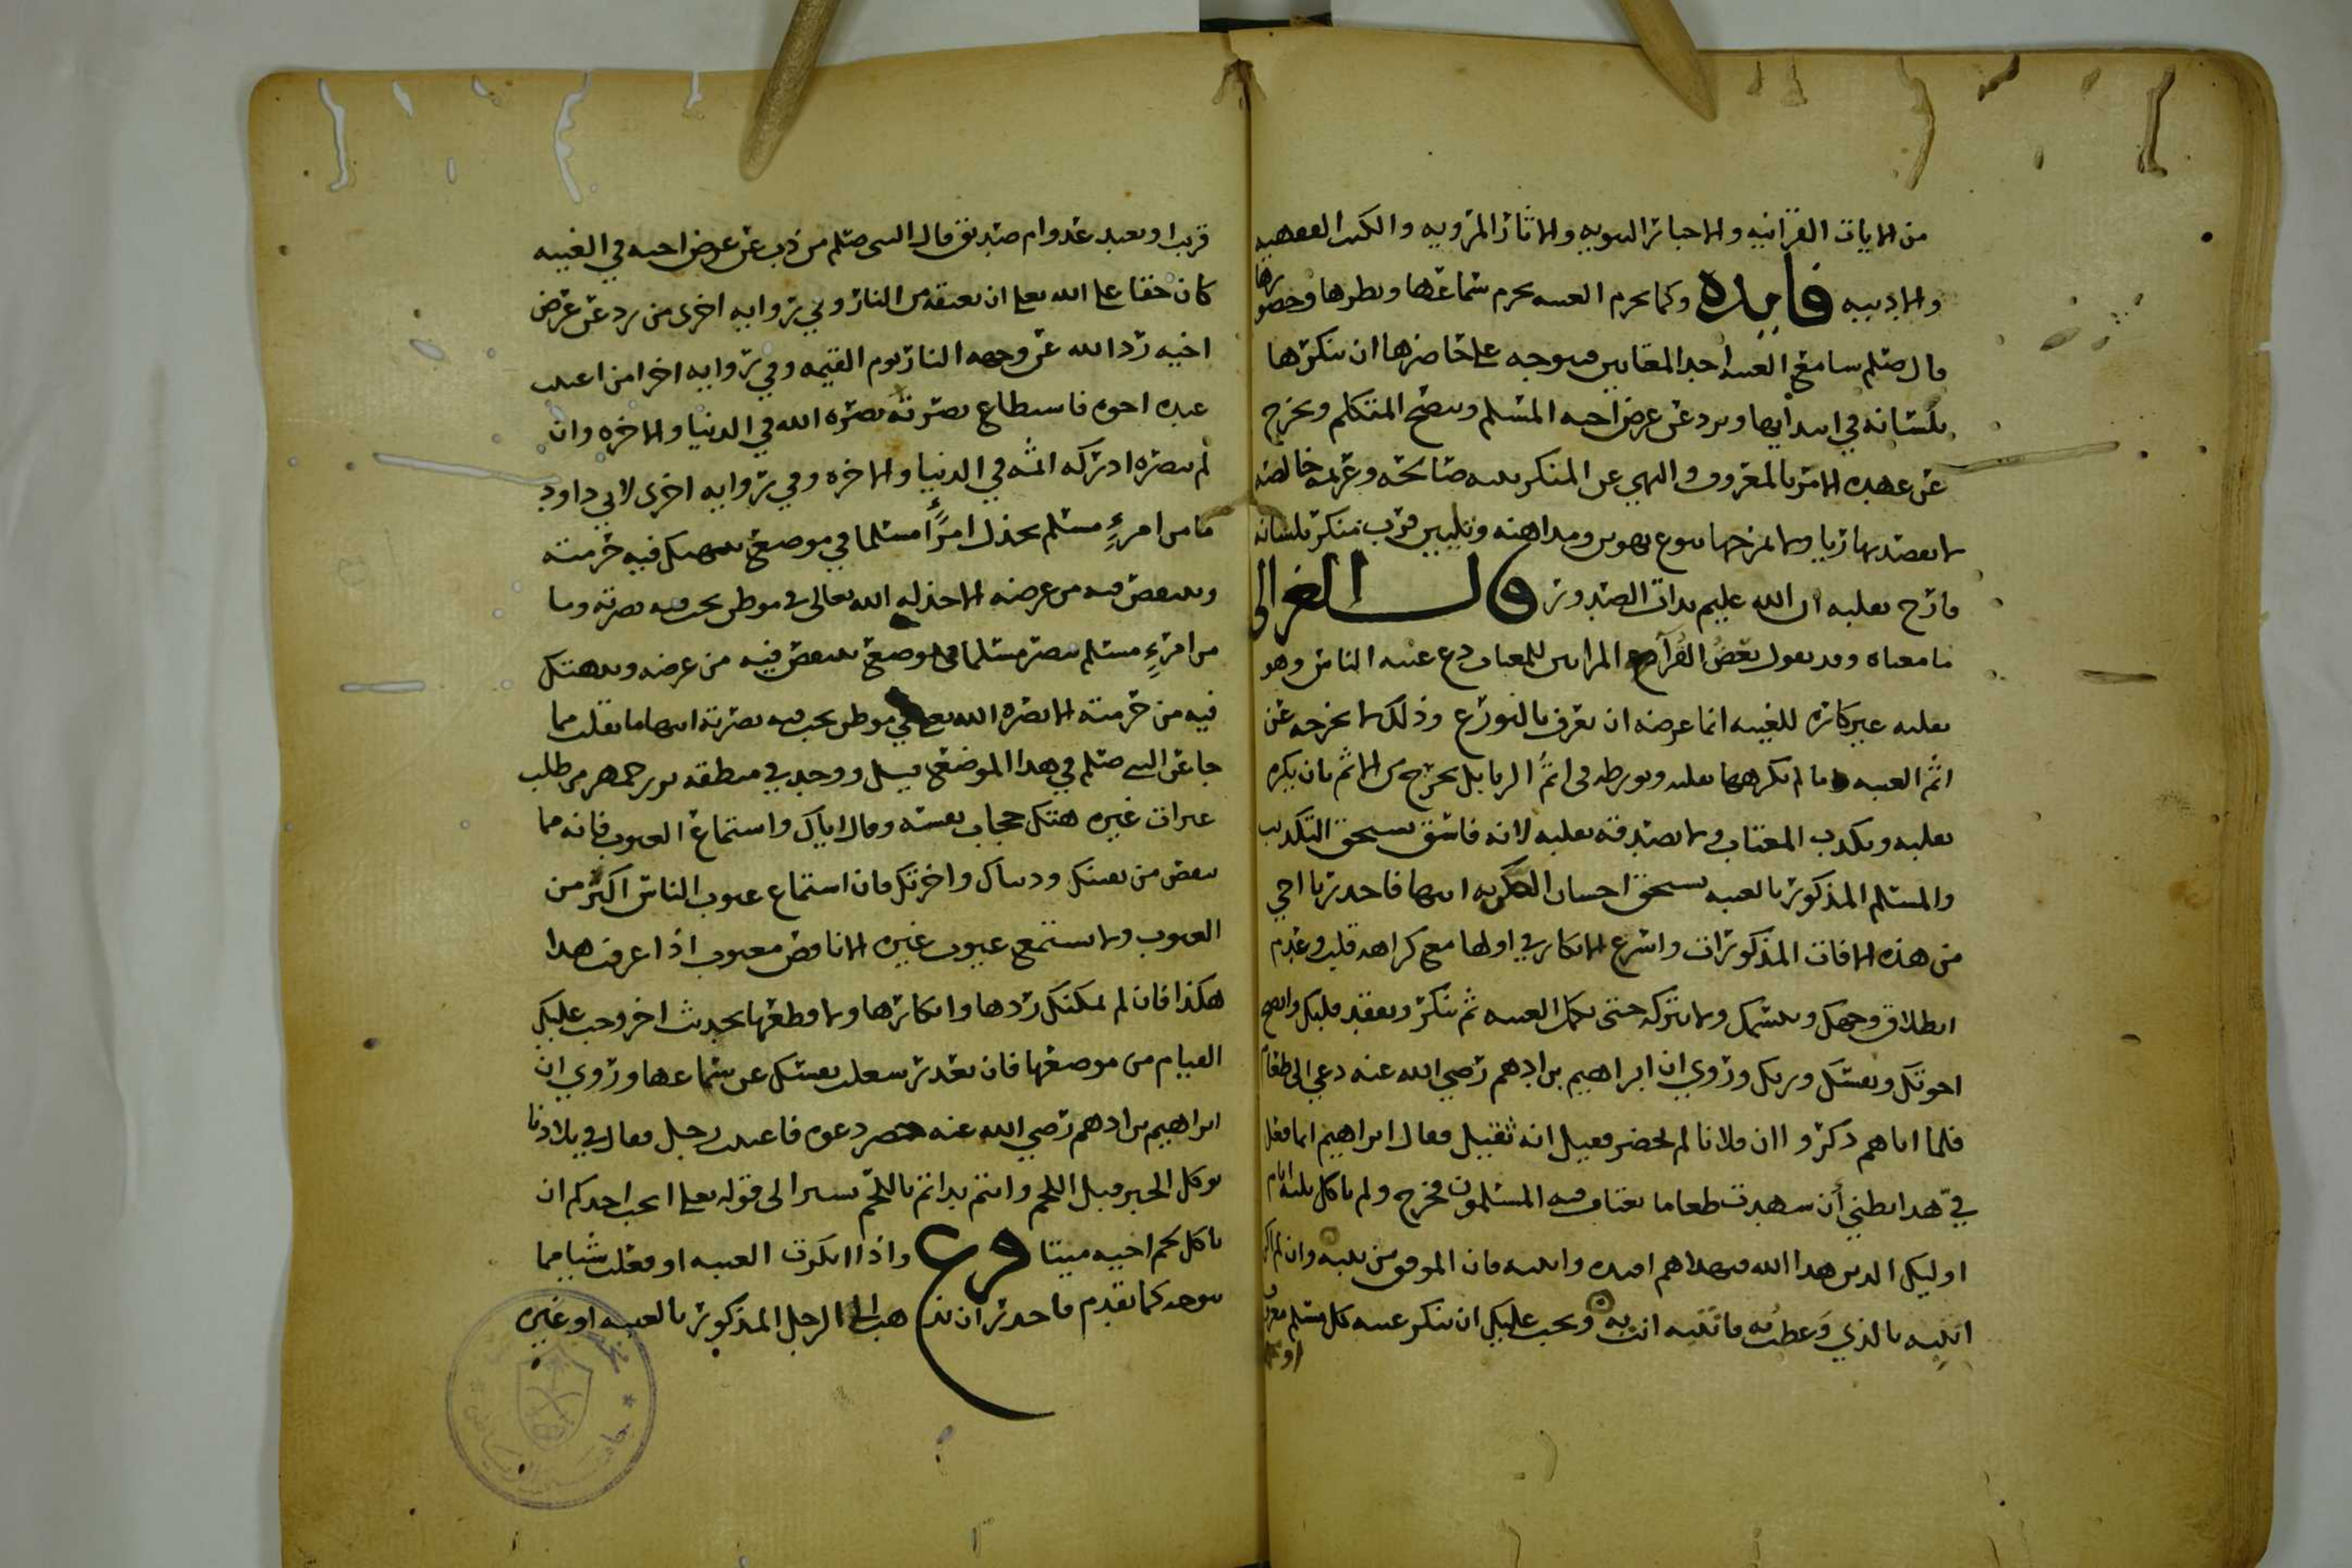 من الايات القرآنيه والاخبار النبويه والاثار المرويه والكتب الفقهيه
والادبيه فايده وكما يحرم الغيبه يحرم سماعها ونطرها وحضورها
قال صلم سامع الغيبه احد المغتابين فيوجه على حاضرها ان ينكرها
بلسانه في ابتدايها ويرد عن عرض اخيه المسلم وينصح المتكلم ويخرج
عن عهده الامر بالمعروف والنهي عن المنكر بنيه صالحه وعزيمه خالصه
لا يقصد بها ريا ولا يمزجها بنوع تهوين ومداهنه وتلبيس فرب منكر بلسانه
مادح بقلبه ان الله عليم بذات الصدور قال الغزالي
ما معناه وقد يقول بعض القرآ المرايين للمغتاب دع غيبه الناس وهو
بقلبه غير كاره للغيبه انما غرضه ان يعرف بالتورع وذلك لا يخرجه عن
اثم الغيبه ما لم يكرهها بقلبه ويورطه في اثم الريا بل يخرج من الاثم بان يكره
بقلبه ويكذب المغتاب ولا يصدقه بقلبه لانه فاسق يستحق التكذيب
والمسلم المذكور بالغيبه يستحق احسان الظن به ايضا فاحذر يا اخي
من هذه الافات المذكورات واشرع الانكار في اولها مع كراهه قلب وعدم
انطلاق وجهك وتبسمك ولا تتركه حتى يكمل الغيبه ثم تنكر وتعقد قلبك وانصح
اخوتك ونفسك وربك وروي ان ابراهيم بن ادهم رضي الله عنه دعي الى طعام
فلما اتاهم ذكروا ان فلانا لم يحضر فقيل انه ثقيل فقال ابراهيم انما فعل
في هذا بطني أن شهدت طعاما يغتاب فيه المسلمون فخرج ولم ياكل ثلثه ايام
اوليك الذين هدا الله فبهداهم اقتده وانتبه فان الموفق من ينتبه وان لم
انتبه بالذي وعظت فانتبه انت به ويجب عليك ان تنكر غيبه كل مسلم
قريب او بعيد عدو ام صديق قال النبي صلم من ذب عن عرض اخيه في الغيبه
كان حقا على الله تعلى ان يعتقه من النار وفي روايه اخرى من رد عن عرض
اخيه رد الله عن وجهه النار يوم القيمه وفي روايه اخرا من اغتيب
عنده اخوه فاستطاع نصرته نصره الله في الدنيا والاخره وان
لم ينصره ادركه اثمه في الدنيا والاخره وفي روايه اخرى لابي داود
ما من امرءٍ مسلم يخذل امرًا مسلما في موضع ينتهك فيه حرمته
وينتقص فيه من عرضه الا خذله الله تعالى في موطن يحب فيه نصرته وما
من امرءٍ مسلم ينصر مسلما في موضع ينتقص فيه من عرضه وينتهك
فيه من حرمته الا نصره الله تعلى في موطن يحب فيه نصرته انتها ما نقلت مما
جا عن النبي صلم في هذا الموضع قيل ووجد في منطقه بزرجمهر من طلب
عثرات غيره هتك حجاب نفسه وقال اياك واستماع العيوب فانه مما
ينقص من نفسك ودينك واخرتك فان استماع عيوب الناس اكثر من
العيوب ولا يستمع عيوب غيره الا ناقص معيوب اذا عرفت هذا
هكذا فان لم يمكنك ردها وانكارها ولا قطعها بحديث اخر وجب عليك
القيام من موضعها فان تعذر شغلت نفسك عن سماعها وروي ان
ابراهيم بن ادهم رضي الله عنه حضر دعوه فاغتيب رجل فقال في بلادنا
يوكل الخبز قبل اللحم وانتم بداتم باللحم يشير الى قوله تعلى ايحب احدكم ان
ياكل لحم اخيه ميتا فرع واذا انكرت الغيبه او فعلت شيا مما
يوجد كما تقدم فاحذر ان تذهب الى الرجل المذكور بالغيبه او غيره